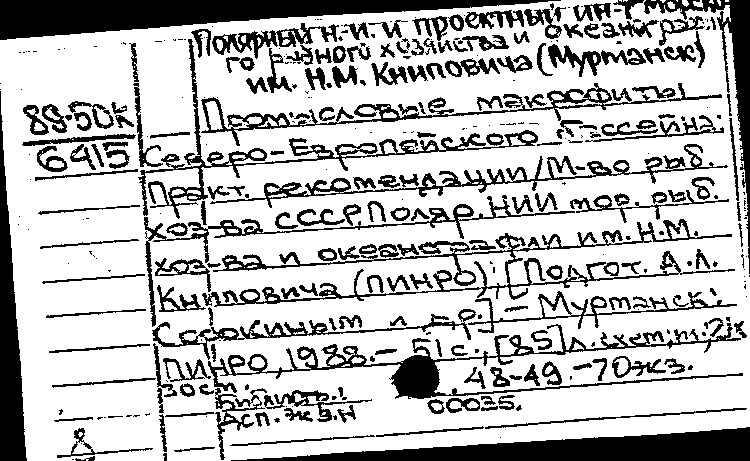 Полярный н.-и. и проектный ин-т морско-
го рыбного хозяйства и океанографии
им. Н.М. Книповича (Мурманск)
Промысловые макрофиты
89-50к
6415
Северо-Европейского бассейна:
Практ. рекомендации/М-во рыб.
хоз-ва СССР, Поляр. НИИ мор. рыб.
хоз-ва и океанографии им. Н.М.
Книповича (ПИНРО); [Подгот. А.Л.
Сорокиным и др.] — Мурманск:
ПИНРО, 1988. — 51 с., [85] л. схем;
30 см.
48-49. — 70 экз.
ДСП. Экз. N 00035.